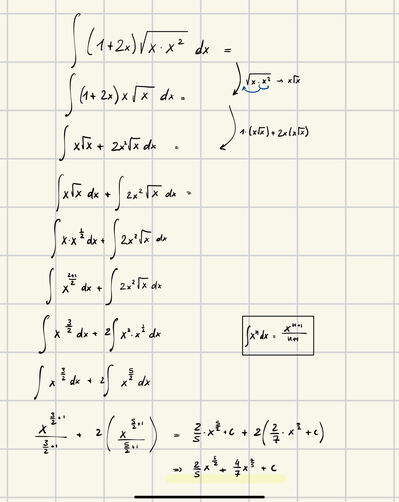 ∫ (1+2x) √(x · x²) dx =
√(x · x²) → x√x
∫ (1+2x) x √x dx =
1·(x√x) + 2x(x√x)
∫ x√x + 2x²√x dx =
∫ x√x dx + ∫ 2x²√x dx =
∫ x·x^(1/2) dx + ∫ 2x²√x dx
∫ x^((2+1)/2) dx + ∫ 2x²√x dx
∫ x^(3/2) dx + 2∫ x²·x^(1/2) dx
∫xⁿdx = x^(n+1)/(n+1)
∫ x^(3/2) dx + 2∫ x^(5/2) dx
x^(3/2+1)/(3/2+1) + 2(x^(5/2+1)/(5/2+1)) = 2/5 · x^(5/2) + c + 2(2/7 · x^(7/2) + c)
⇒ 2/5 x^(5/2) + 4/7 x^(7/2) + c